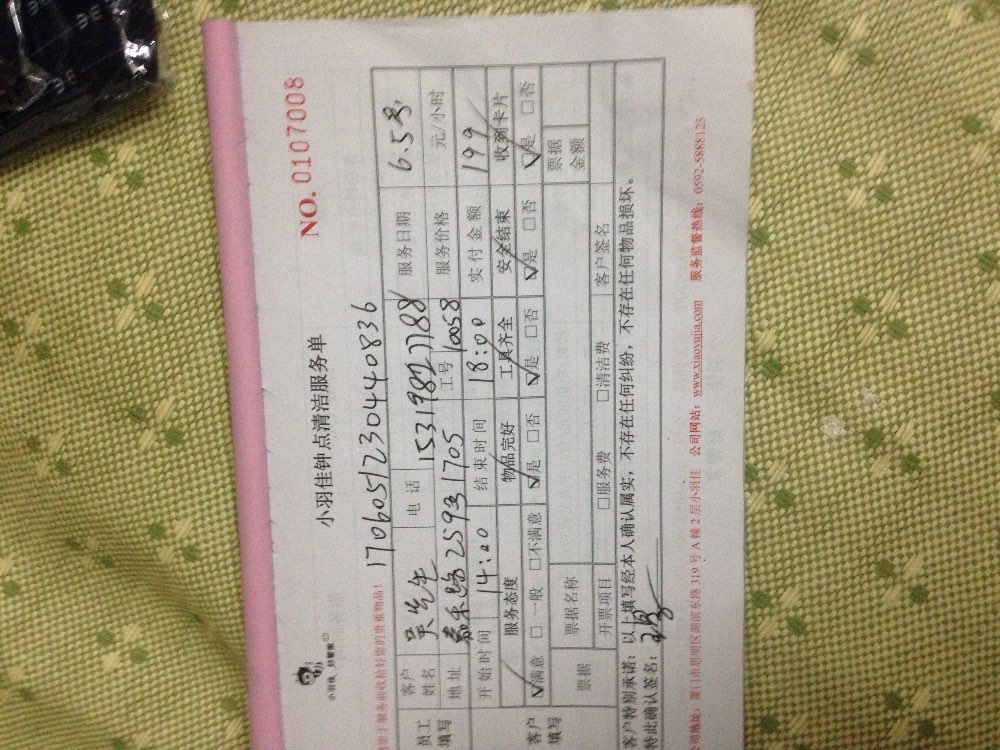 小羽佳 好餐家
小羽佳钟点清洁服务单
NO. 0107008
服务前收拾好您的贵重物品!
170605123044 0836
员工填写 客户姓名 吴先生 电话 15319827788 服务日期 6.5号
地址 嘉禾路2593 1705 工号 10058 服务价格 元/小时
开始时间 14:00 结束时间 18:00 实付金额 199
客户填写 服务态度 物品完好 工具齐全 安全结束 收到卡片
☑满意 □一般 □不满意 ☑是 □否 ☑是 □否 ☑是 □否 ☑是 □否
票据 票据名称 票据金额
开票项目 □服务费 □清洁费 客户签名
客户特别承诺: 以上填写经本人确认属实,不存在任何纠纷,不存在任何物品损坏。
特此确认签名:
公司地址: 厦门市思明区湖滨东路319号A幢2层小羽佳 公司网站: www.xiaoyujia.com 服务监督热线: 0592-5888123